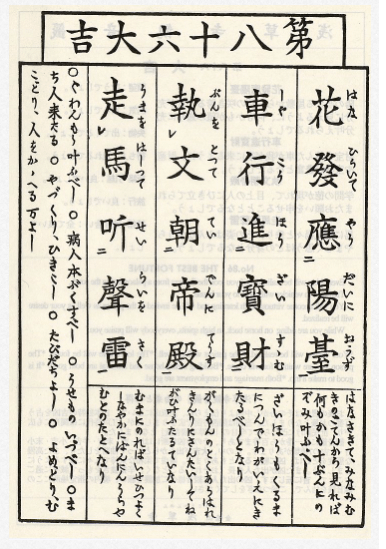 第八十六大吉
花發應陽臺
はな ひらいて やう だいに おうず
はなさきて、みなみむ
きのこてんから見れば
何もかも十ぶんにの
ぞみ叶ふべし
車行進寶財
ほう ざい すゝむ
ざいほうもくるま
につんでわがいえにき
たるべしとなり
執文朝帝殿
ぶんを とつて ていでんに てうす
がくもんのとくあらはれ
きんりにさんだいしてね
がひ叶ふたるていなり
走馬听聲雷
うまを はしつて
むまにのればいせひつよく
しなやかにはんにんうらや
むとのたとへなり
○ぐわんもう叶ふべし ○病人本ぶくすべし ○うせものいづべし ○ま
ち人来たる ○やづくりひきこし ○たびだちよし ○よめどり、む
こどり、人をかゝへる万よし